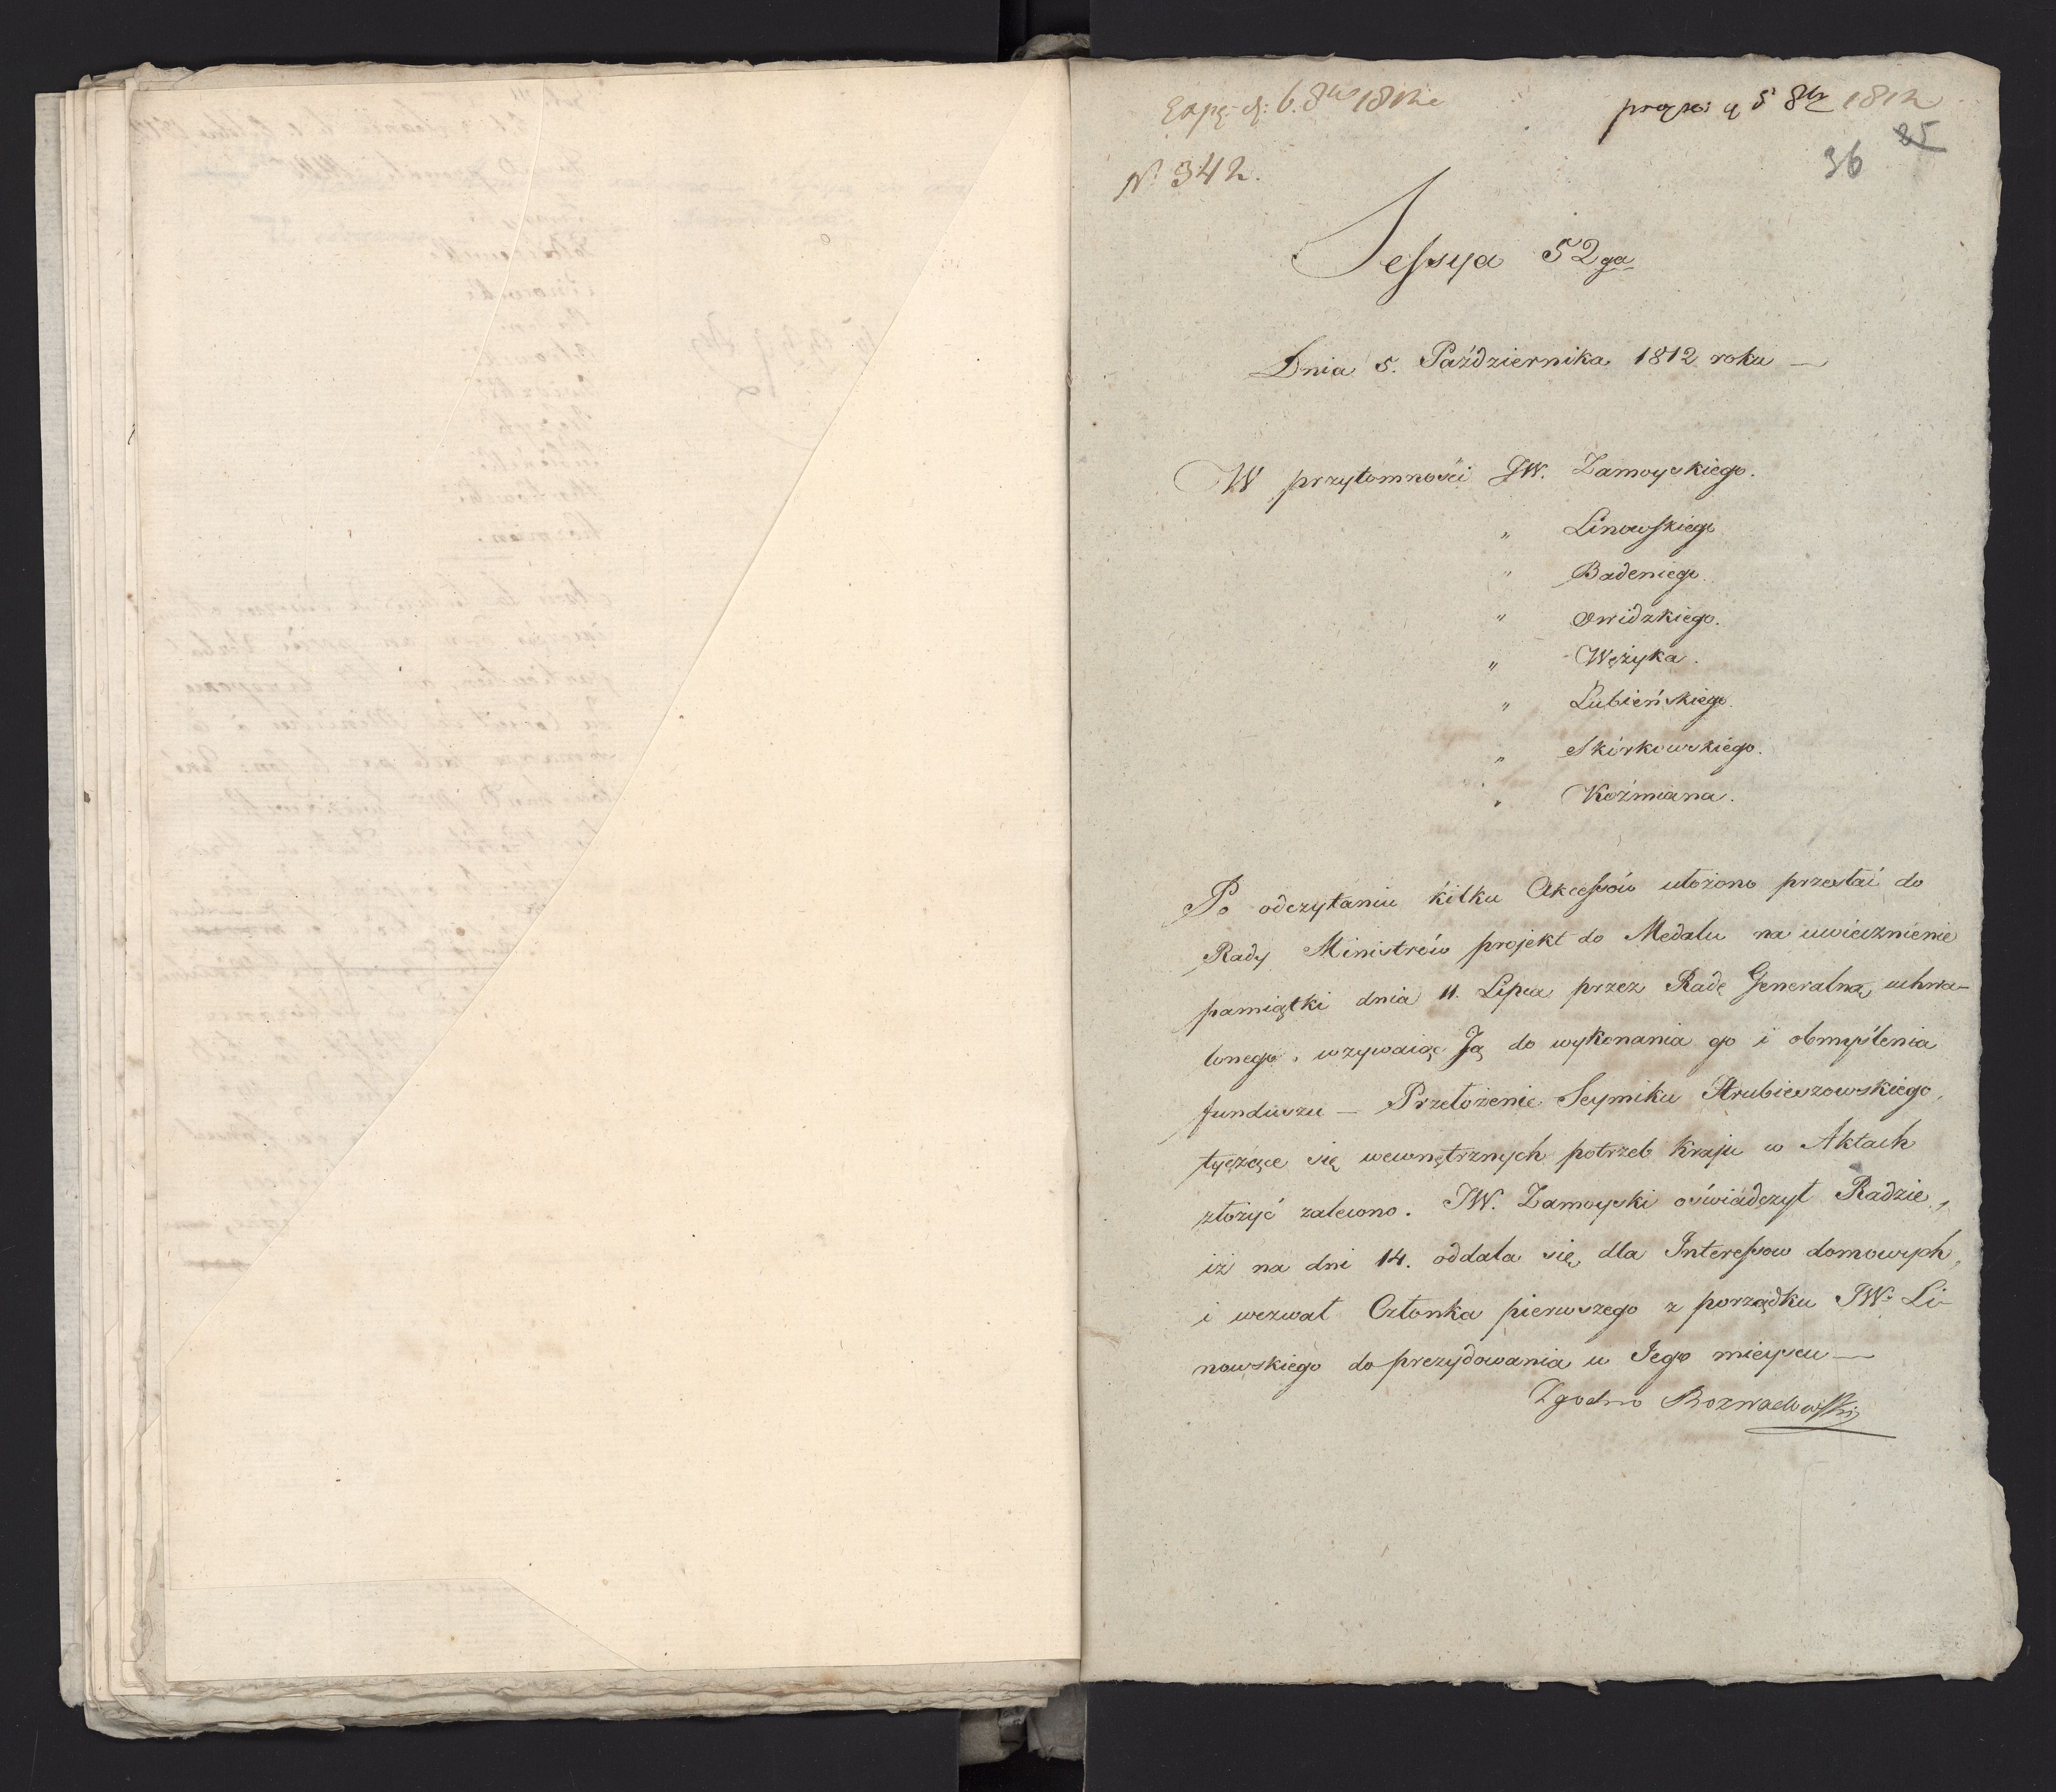 d: 6. 8br 1812
5 8br 1812
36 25
N. 342.
Sessya 52ga
Dnia 5. Października 1812 roku —
W przytomności JW. Zamoyskiego.
" Linowskiego
" Badeniego.
" Swidzkiego.
" Wężyka.
" Lubieńskiego.
" Skórkowskiego.
" Koźmiana.
Po odczytaniu kilku Akcessów ułożono przesłać do
Rady Ministrów projekt do Medalu na uwiecznienie
pamiątki dnia 11. Lipca przez Radę Generalną uchwa-
lonego, wzywaiąc Ją do wykonania go i obmyślenia
funduszu — Przełożenie Seymiku Hrubieszowskiego,
tyczące się wewnętrznych potrzeb kraju w Aktach
złożyć zalecono. JW. Zamoyski oświadczył Radzie,
iż na dni 14. oddala się dla Interessow domowych,
i wezwał Członka pierwszego z porządku JW. Li-
nowskiego do prezydowania w Jego mieyscu —
Zgodno Rozwadowski